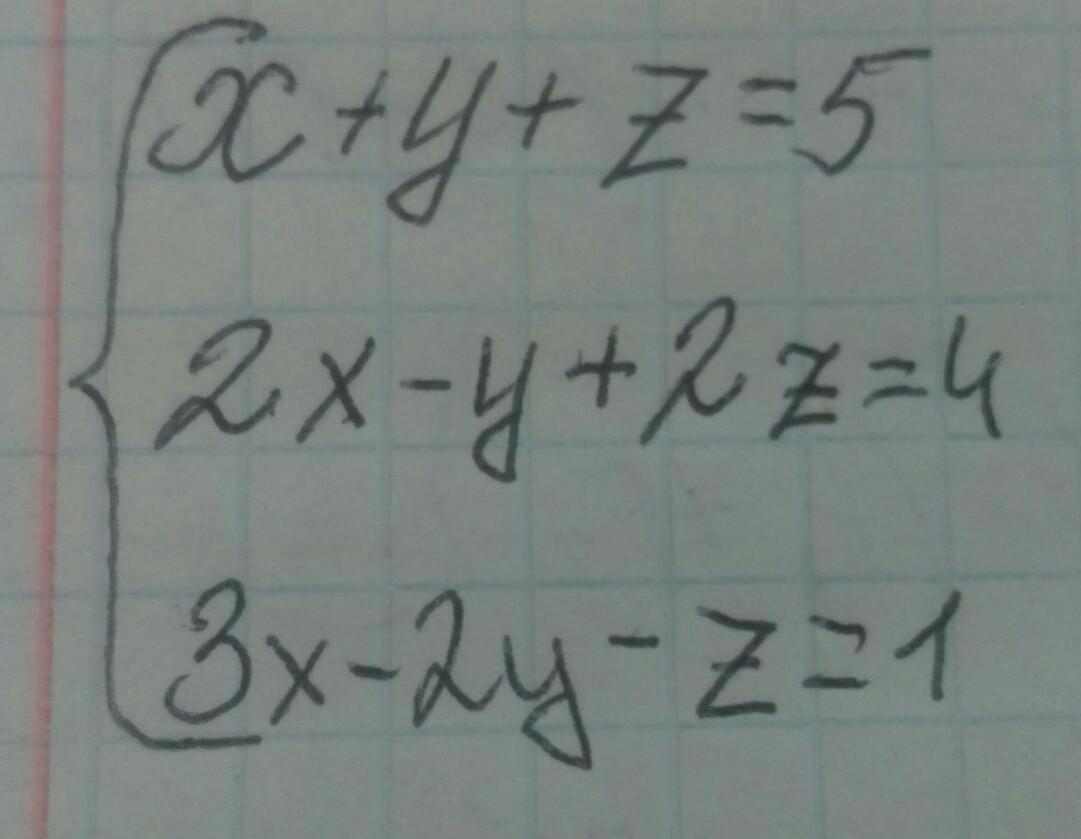 x+y+z=5
2x-y+2z=4
3x-2y-z=1